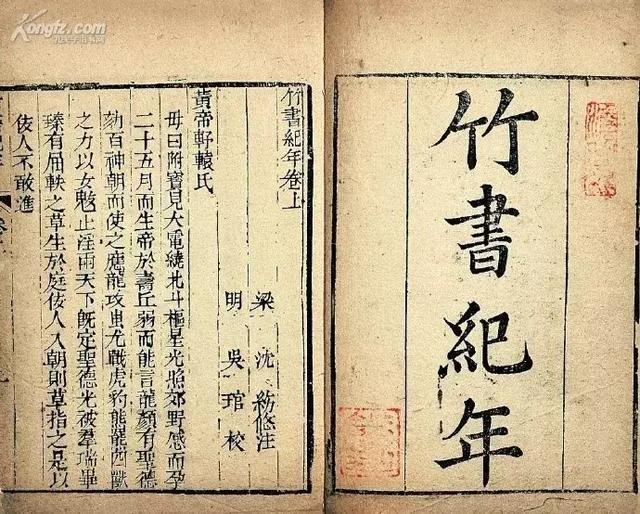 竹書紀年
竹書紀年卷上
梁 沈約修注
明 吳琯校
黃帝軒轅氏
母曰附寶見大電繞北斗樞星光照郊野感而孕
二十五月而生帝於壽丘弱而能言龍顏有聖德
劾百神朝而使之應龍攻蚩尤戰虎豹熊羆四獸
之力以女魃止淫雨天下既定聖德光被羣瑞畢
臻有屈軼之草生於庭佞人入朝則草指之是以
佞人不敢進
Kongfz.com